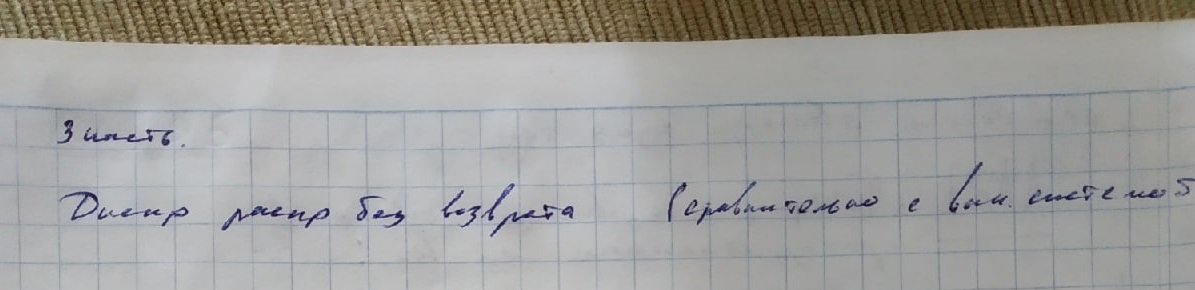 3 часть.
Дискр распр без возврата (сравнительно с вын. системой